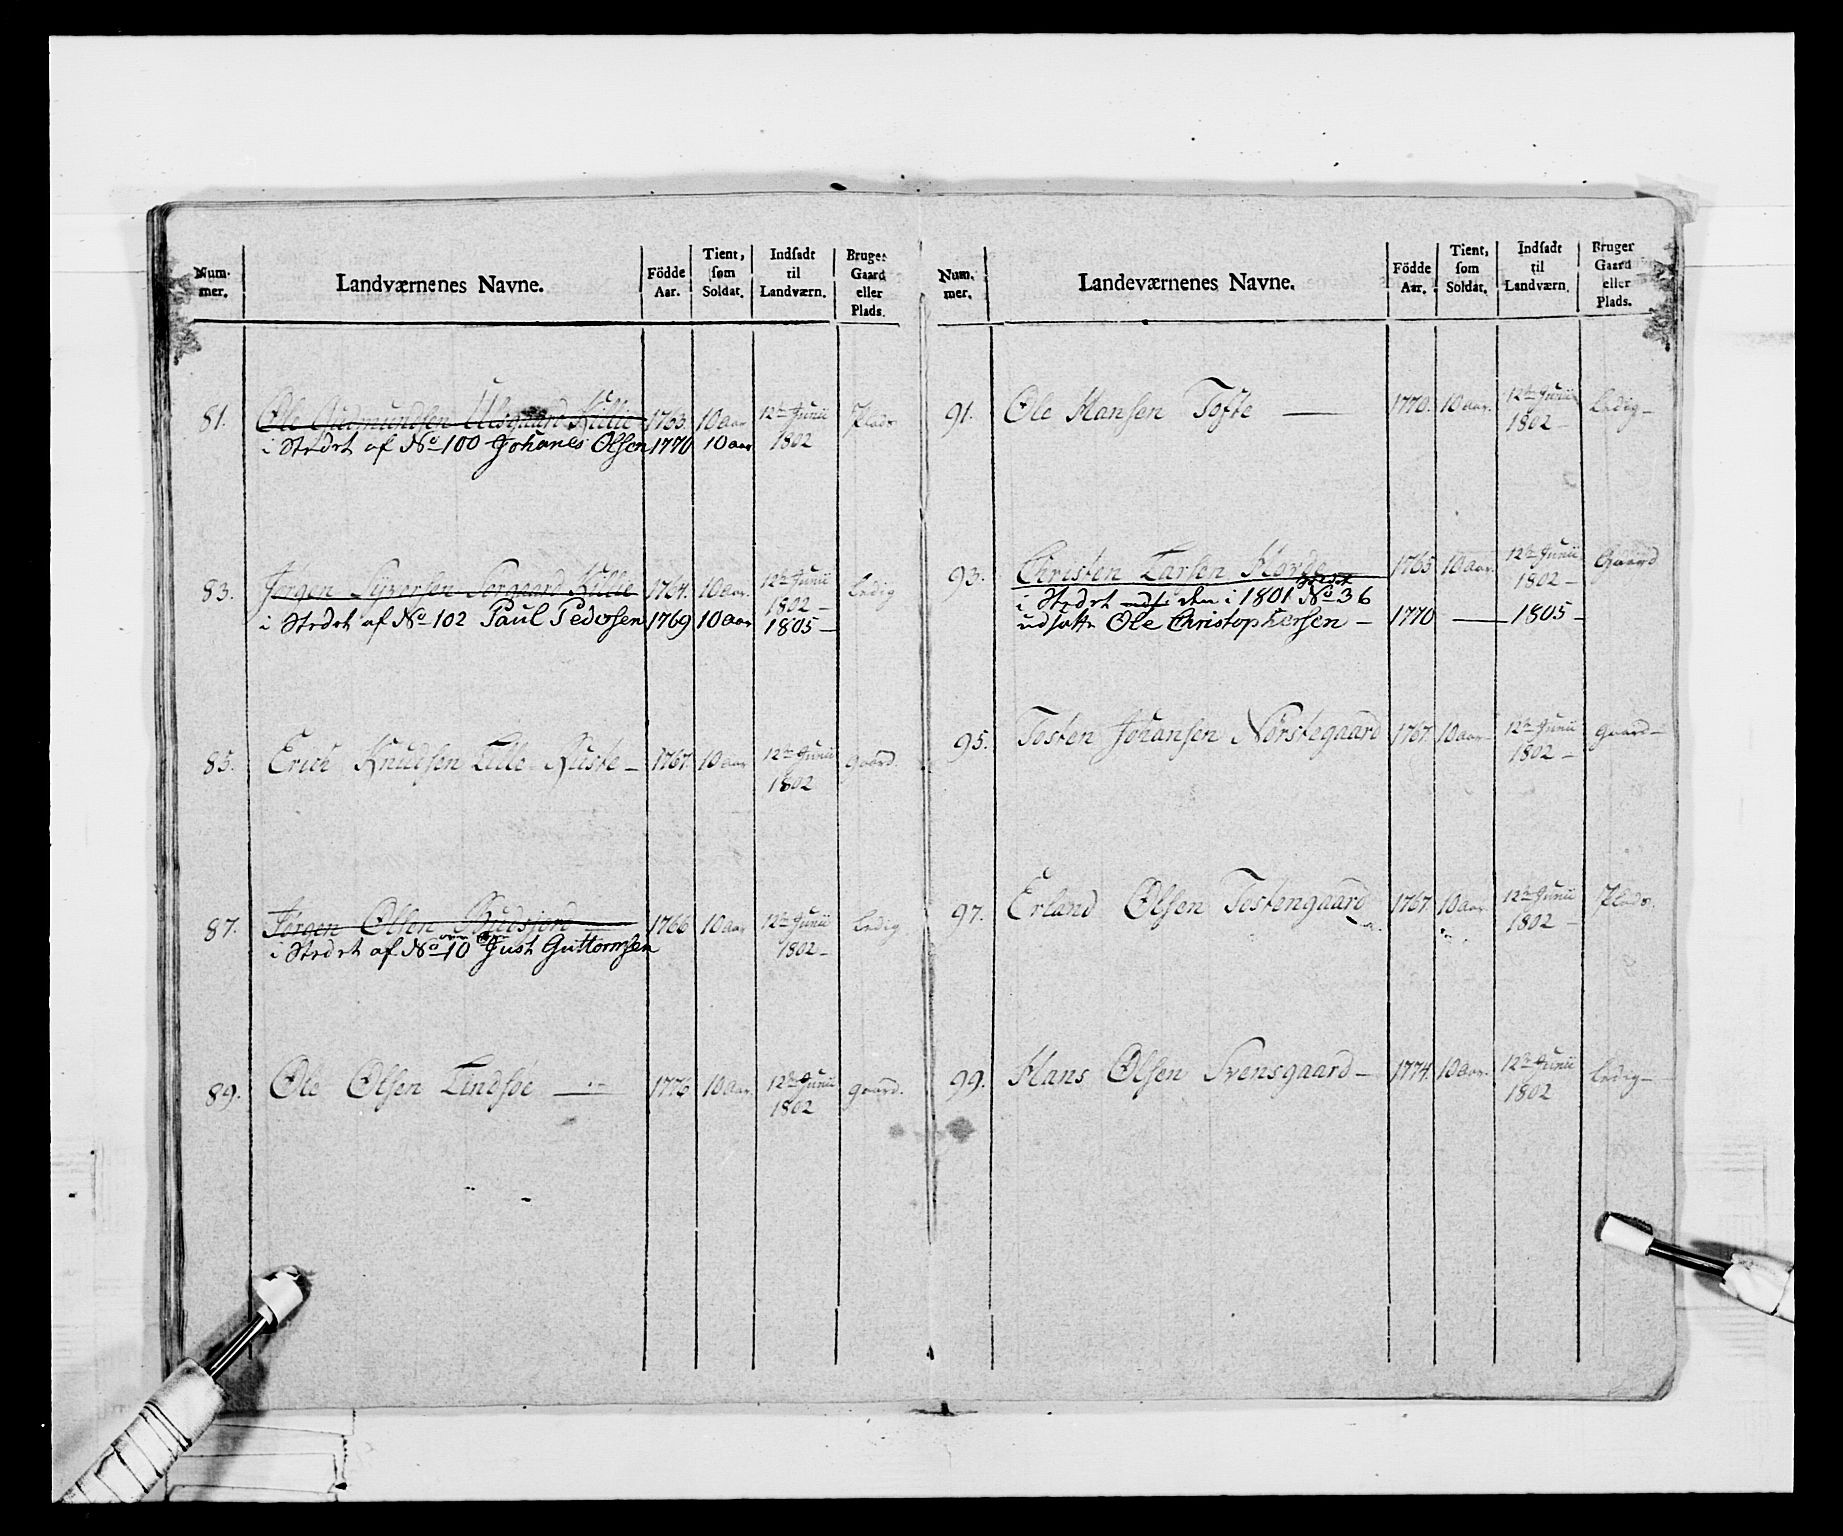 Num-
mer.
Landværnenes Navne.
Födde
Aar.
Tient,
som
Soldat.
Indsadt
til
Landværn.
Bruger
Gaard
eller
Plads.
81. Ole Gudmundsen Ulsgaard Killie 1763. 10 aar 12te Junii Plads
i Stedet af No 100 Johanes Olsen 1770 10 aar 1802
83. Jørgen Syversen Sorgaard Killie 1764. 10 aar. 12te Junii Ledig
1802 –
i Stedet af No 102 Paul Pedersen 1769 10 aar 1805 –
85. Erich Knudsen Lille Kuste – 1767. 10 aar 12te Junii gaard.
1802
87. Jørgen Olsen Budsjord 1766 10 aar 12te Junii Ledig
i Stedet af No 10 Just Guttormsen 1802 –
89. Ole Olsen Lindsøe — 1776 10 aar. 12te Junii gaard.
1802
Num.
mer.
Landeværnenes Navne.
Födde
Aar.
Tient,
som
Soldat.
Indsadt
til
Landværn.
Bruger
Gaard
eller
Plads.
91. Ole Hansen Tofte — 1770. 10 aar. 12te Junii Ledig –
1802 –
93. Christen Larsen Horde 1765 10 aar. 12te Junii Gaard
1802 –
i Stedet den i 1801 No 36
udsatte Ole Christophersen – 1770 — 1805 –
95. Tosten Johansen Norstegaard 1767. 10 aar 12te Junii gaard –
1802 –
97. Erland Olsen Tostengaard 1767 10 aar 12te Junii Plads.
1802 –
99. Hans Olsen Svensgaard – 1774. 10 aar. 12te Junii Ledig –
1802